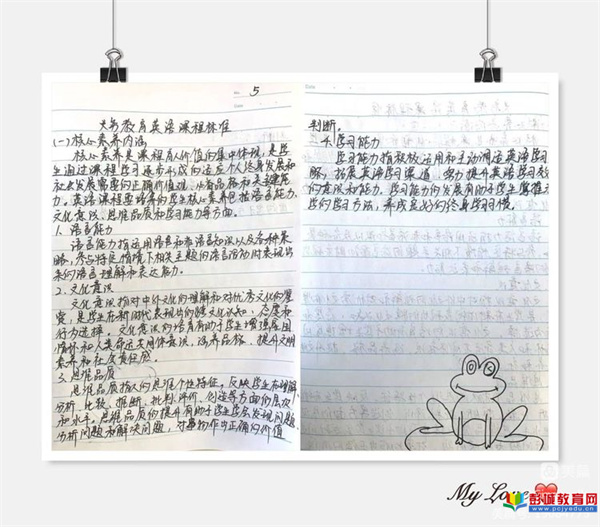 No. 5
Date
义务教育英语课程标准
(一)核心素养内涵
核心素养是课程育人价值的集中体现,是学
生通过课程学习逐步形成的适应个人终身发展和
社会发展需要的正确价值观、必备品格和关键能
力。英语课程要培养的学生核心素养包括语言能力、
文化意识、思维品质和学习能力等方面。
1.语言能力
语言能力指运用语言和非语言知识以及各种策
略,参与特定情境下相关主题的语言活动时表现出
来的语言理解和表达能力。
2.文化意识
文化意识指对中外文化的理解和对优秀文化的鉴
赏,是学生在新时代表现出的跨文化认知、态度和
行为选择。文化意识的培育有助于学生增强家国
情怀和人类命运共同体意识,涵养品格,提升文明
素养和社会责任感。
3.思维品质
思维品质指人的思维个性特征,反映学生在理解、
分析、比较、推断、批判、评价、创造等方面的层次
和水平。思维品质的提升有助于学生学会发现问题、
分析问题和解决问题,对事物作出正确的价值
判断。
4.学习能力
学习能力指积极运用和主动调适英语学习策
略、拓展英语学习渠道、努力提升英语学习效率
的意识和能力。学习能力的发展有助于学生掌握科
学的学习方法,养成良好的终身学习习惯。
My Love
彭城教育网
www.pcjyedu.com